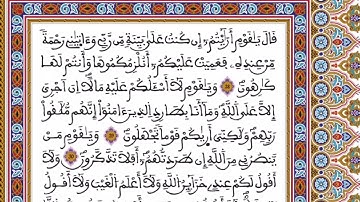 قَالَ يَٰقَوْمِ أَرَٰٓيْتُمُۥٓ إِن كُنتُ عَلَىٰ بَيِّنَةٖ مِّن رَّبِّے وَءَاتَيٰنِے رَحْمَةٗ
مِّنْ عِندِهِۦ فَعَمِيَتْ عَلَيْكُمُۥٓ أَنُلْزِمُكُمُوهَا وَأَنتُمْ لَهَا
كَٰرِهُونَ وَيَٰقَوْمِ لَآ أَسْـَٔلُكُمْ عَلَيْهِ مَالًا اِنَ اَجْرِيَ
إِلَّا عَلَى اَللَّهِ وَمَآ أَنَا بِطَارِدِ اِلذِينَ ءَامَنُوٓاْ إِنَّهُم مُّلَٰقُواْ
رَبِّهِمْ وَلَٰكِنِّيَ أَر۪يٰكُمْ قَوْماٗ تَجْهَلُونَ وَيَٰقَوْمِ مَنْ
يَّنصُرُنِے مِنَ اَللَّهِ إِن طَرَدتُّهُمُۥٓ أَفَلَا تَذَّكَّرُونَ وَلَآ
أَقُولُ لَكُمْ عِندِے خَزَآئِنُ اُللَّهِ وَلَآ أَعْلَمُ اُلْغَيْبَ وَلَآ أَقُولُ